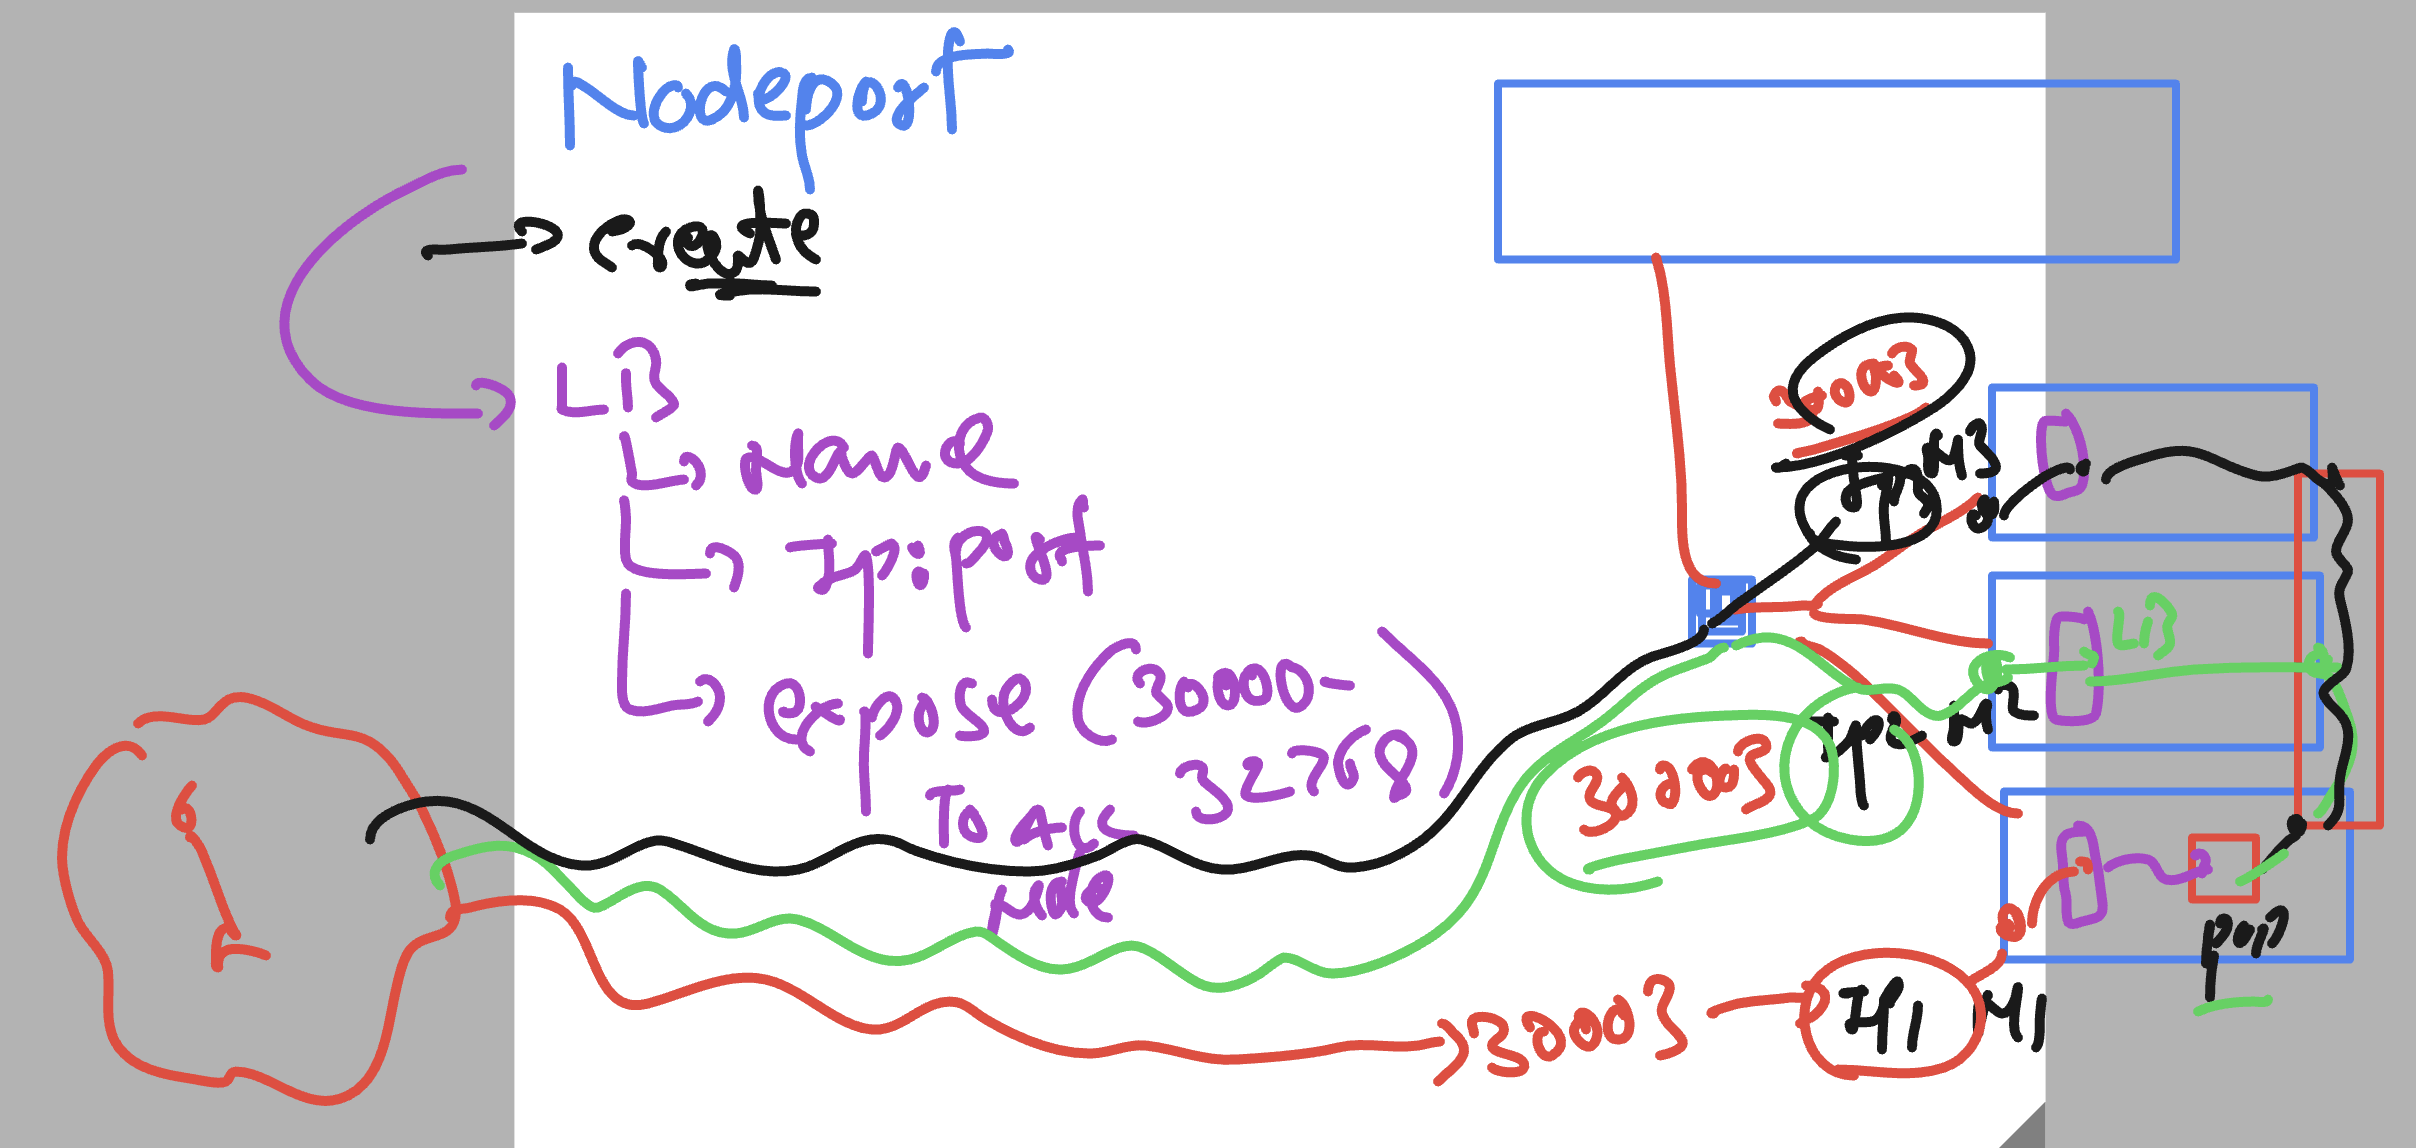 Nodeport
create
LB
Name
Ip:port
expose (30000-
32768)
To Acc
Node
30003
IP3 M3
LB
30003
IP2 M2
pod
30003
IP1 M1